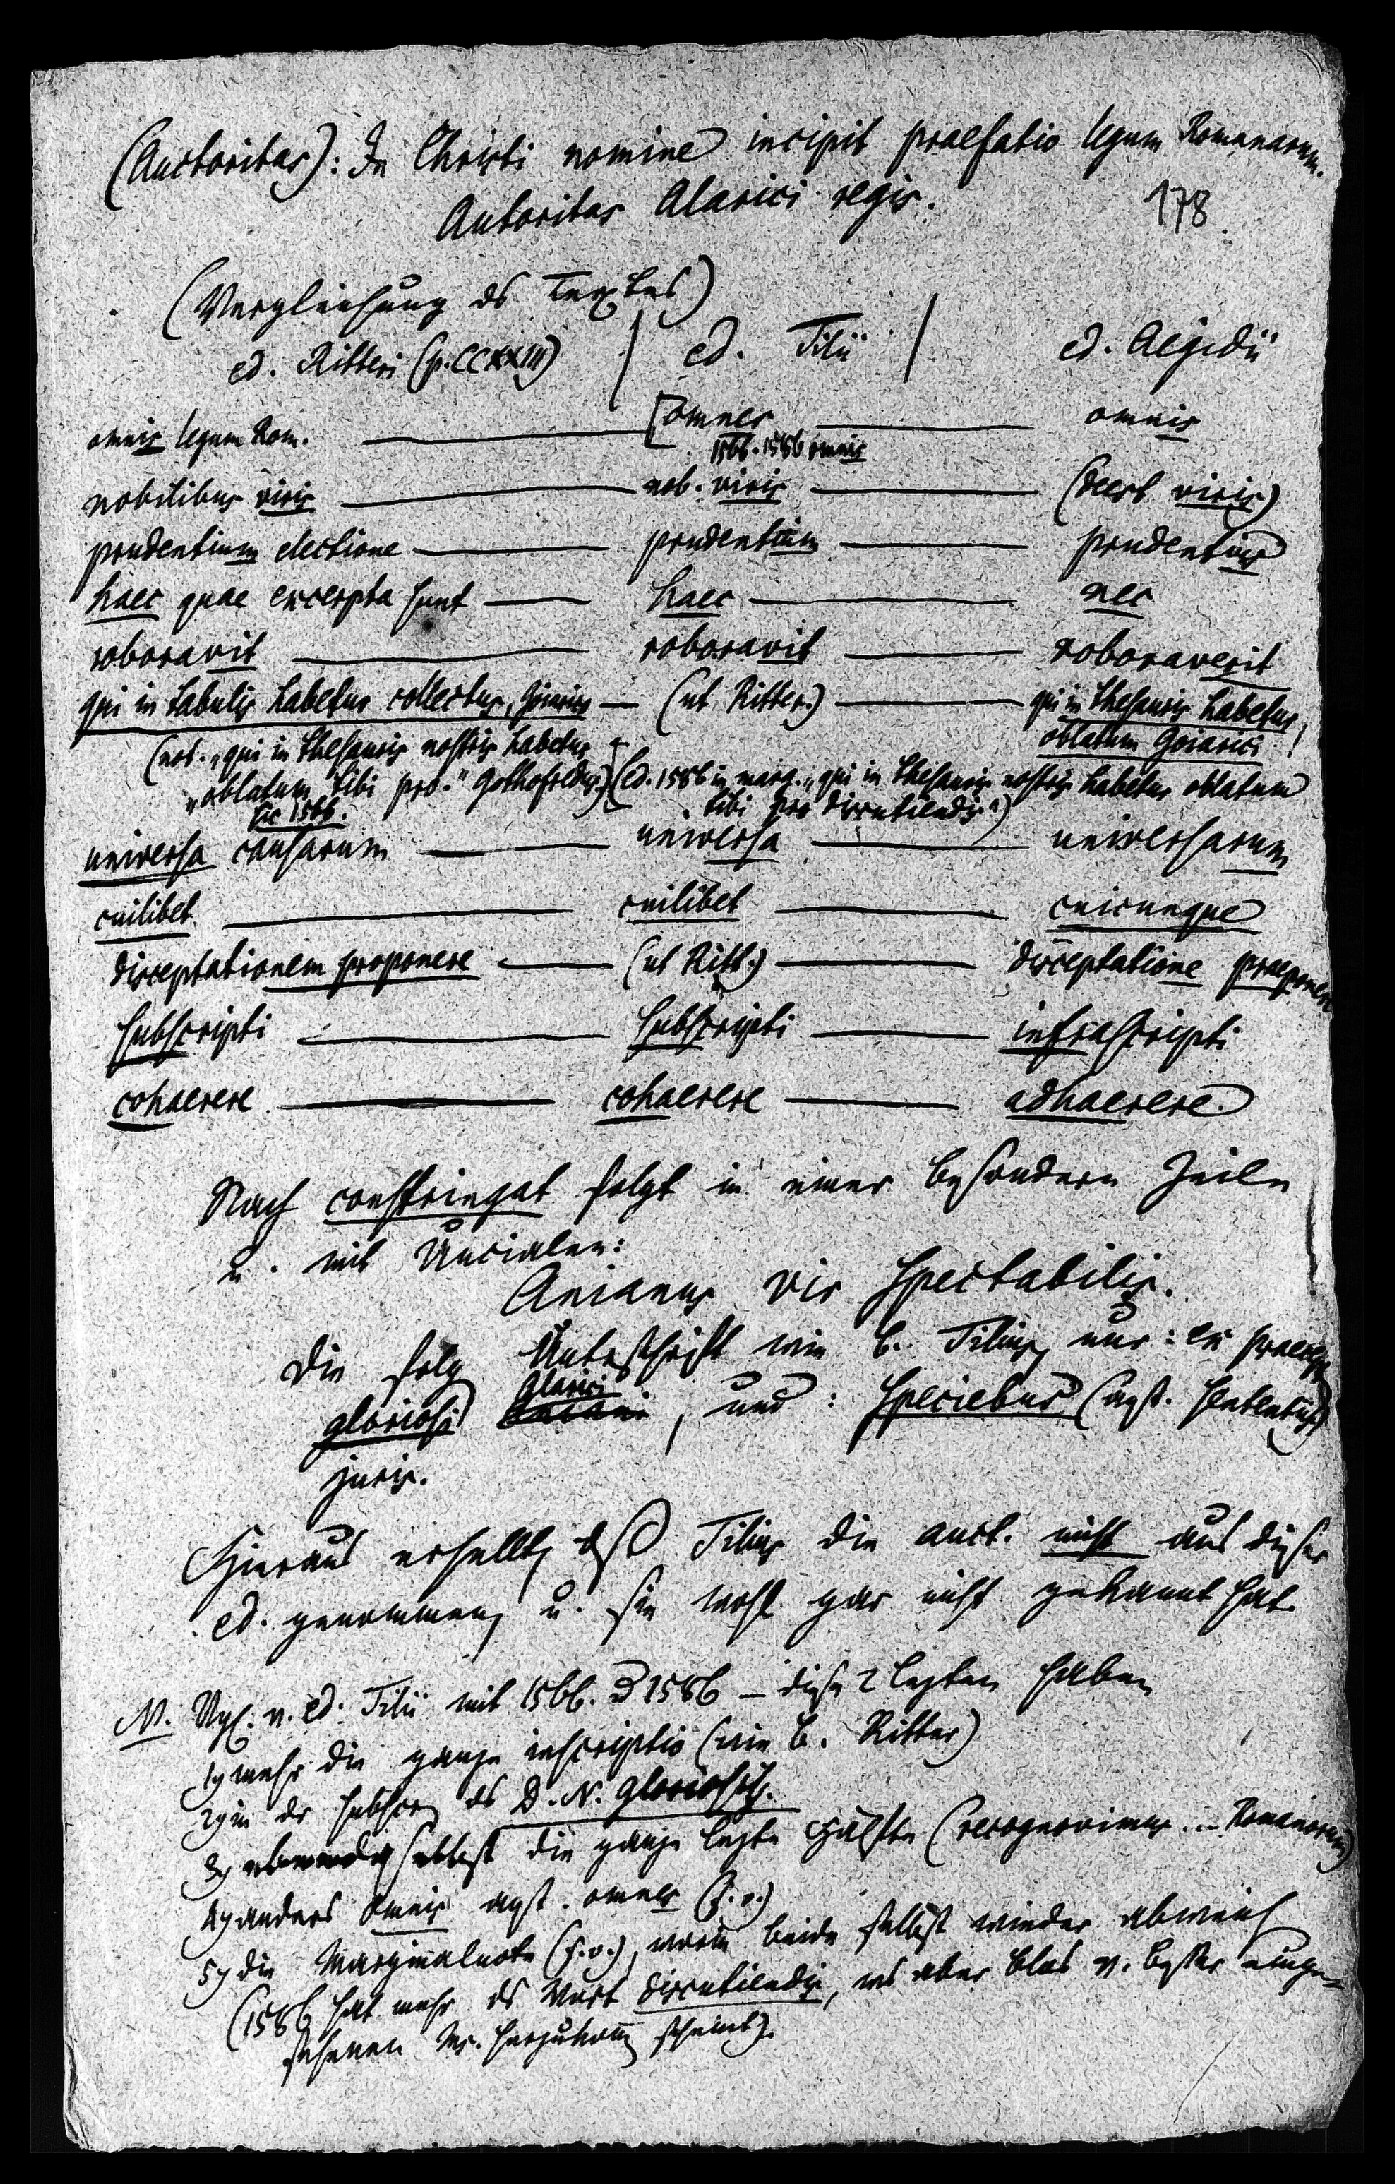 (Auctoritas): In Christi nomine incipit praefatio legum Romanarum.
Autoritas Alarici regis.
178
(Vergleichung ds Textes)
ed. Ritteri (p. CCXXIII) | ed. Tilii | ed. Aegidii
omnis legum Rom. — [omnes — omnis
1566. 1586 omnis
nobilibus viris — nob. viris — (deest viris)
prudentium electione — prudentium — prudentius
haec quae excerpta sunt — haec — nec
roboravit — roboravit — roboraverit
qui in tabulis habetur collectus, — (ut Ritter.) — qui in thesauris habetur,
oblatum Goiarici!
(not. „qui in thesauris nostris habetur
„oblatum tibi pro." Gothofredus) (Ed. 1586 in marg. „qui in thesauris nostris habetur oblatum
tibi pro discutiendis")
sic 1566.
universa causarum — universa — universarum
cuilibet — cuilibet — cuicunque
disceptationem proponere — (ut Ritt.) — disceptatione praeponere
subscripti — subscripti — infrascripti
cohaerere — cohaerere — adhaerere.
Nach constringat folgt in einer besondern Zeile
u. mit Uncialen:
Anianus vir spectabilis.
die folg Unterschrift wie b. Tilius, nur: ex
gloriosi Alarici, und: speciebus (agst. sententiis)
juris.
Hieraus erhellt, dß Tilius die auct. nicht aus dieser
ed. genommen, u. sie wohl gar nicht gekannt hat.
N. Vgl. v. ed. Tilii mit 1566. u 1586 — diese 2 letzten haben
1) mehr die ganze inscriptio (wie b. Ritter)
2) in dr subscr. ds D. N. gloriosiss.
3) selbst die ganze letzte Hälfte (recognovimus ... Romanorum)
4) anders omnis agst. omnes (s. o.)
5) die Marginalnote (s. o.), worin beide selbst wieder abweich
(1586 hat mehr ds Wort discutiendis, ws aber blos v.
Ms. herzukom scheint).